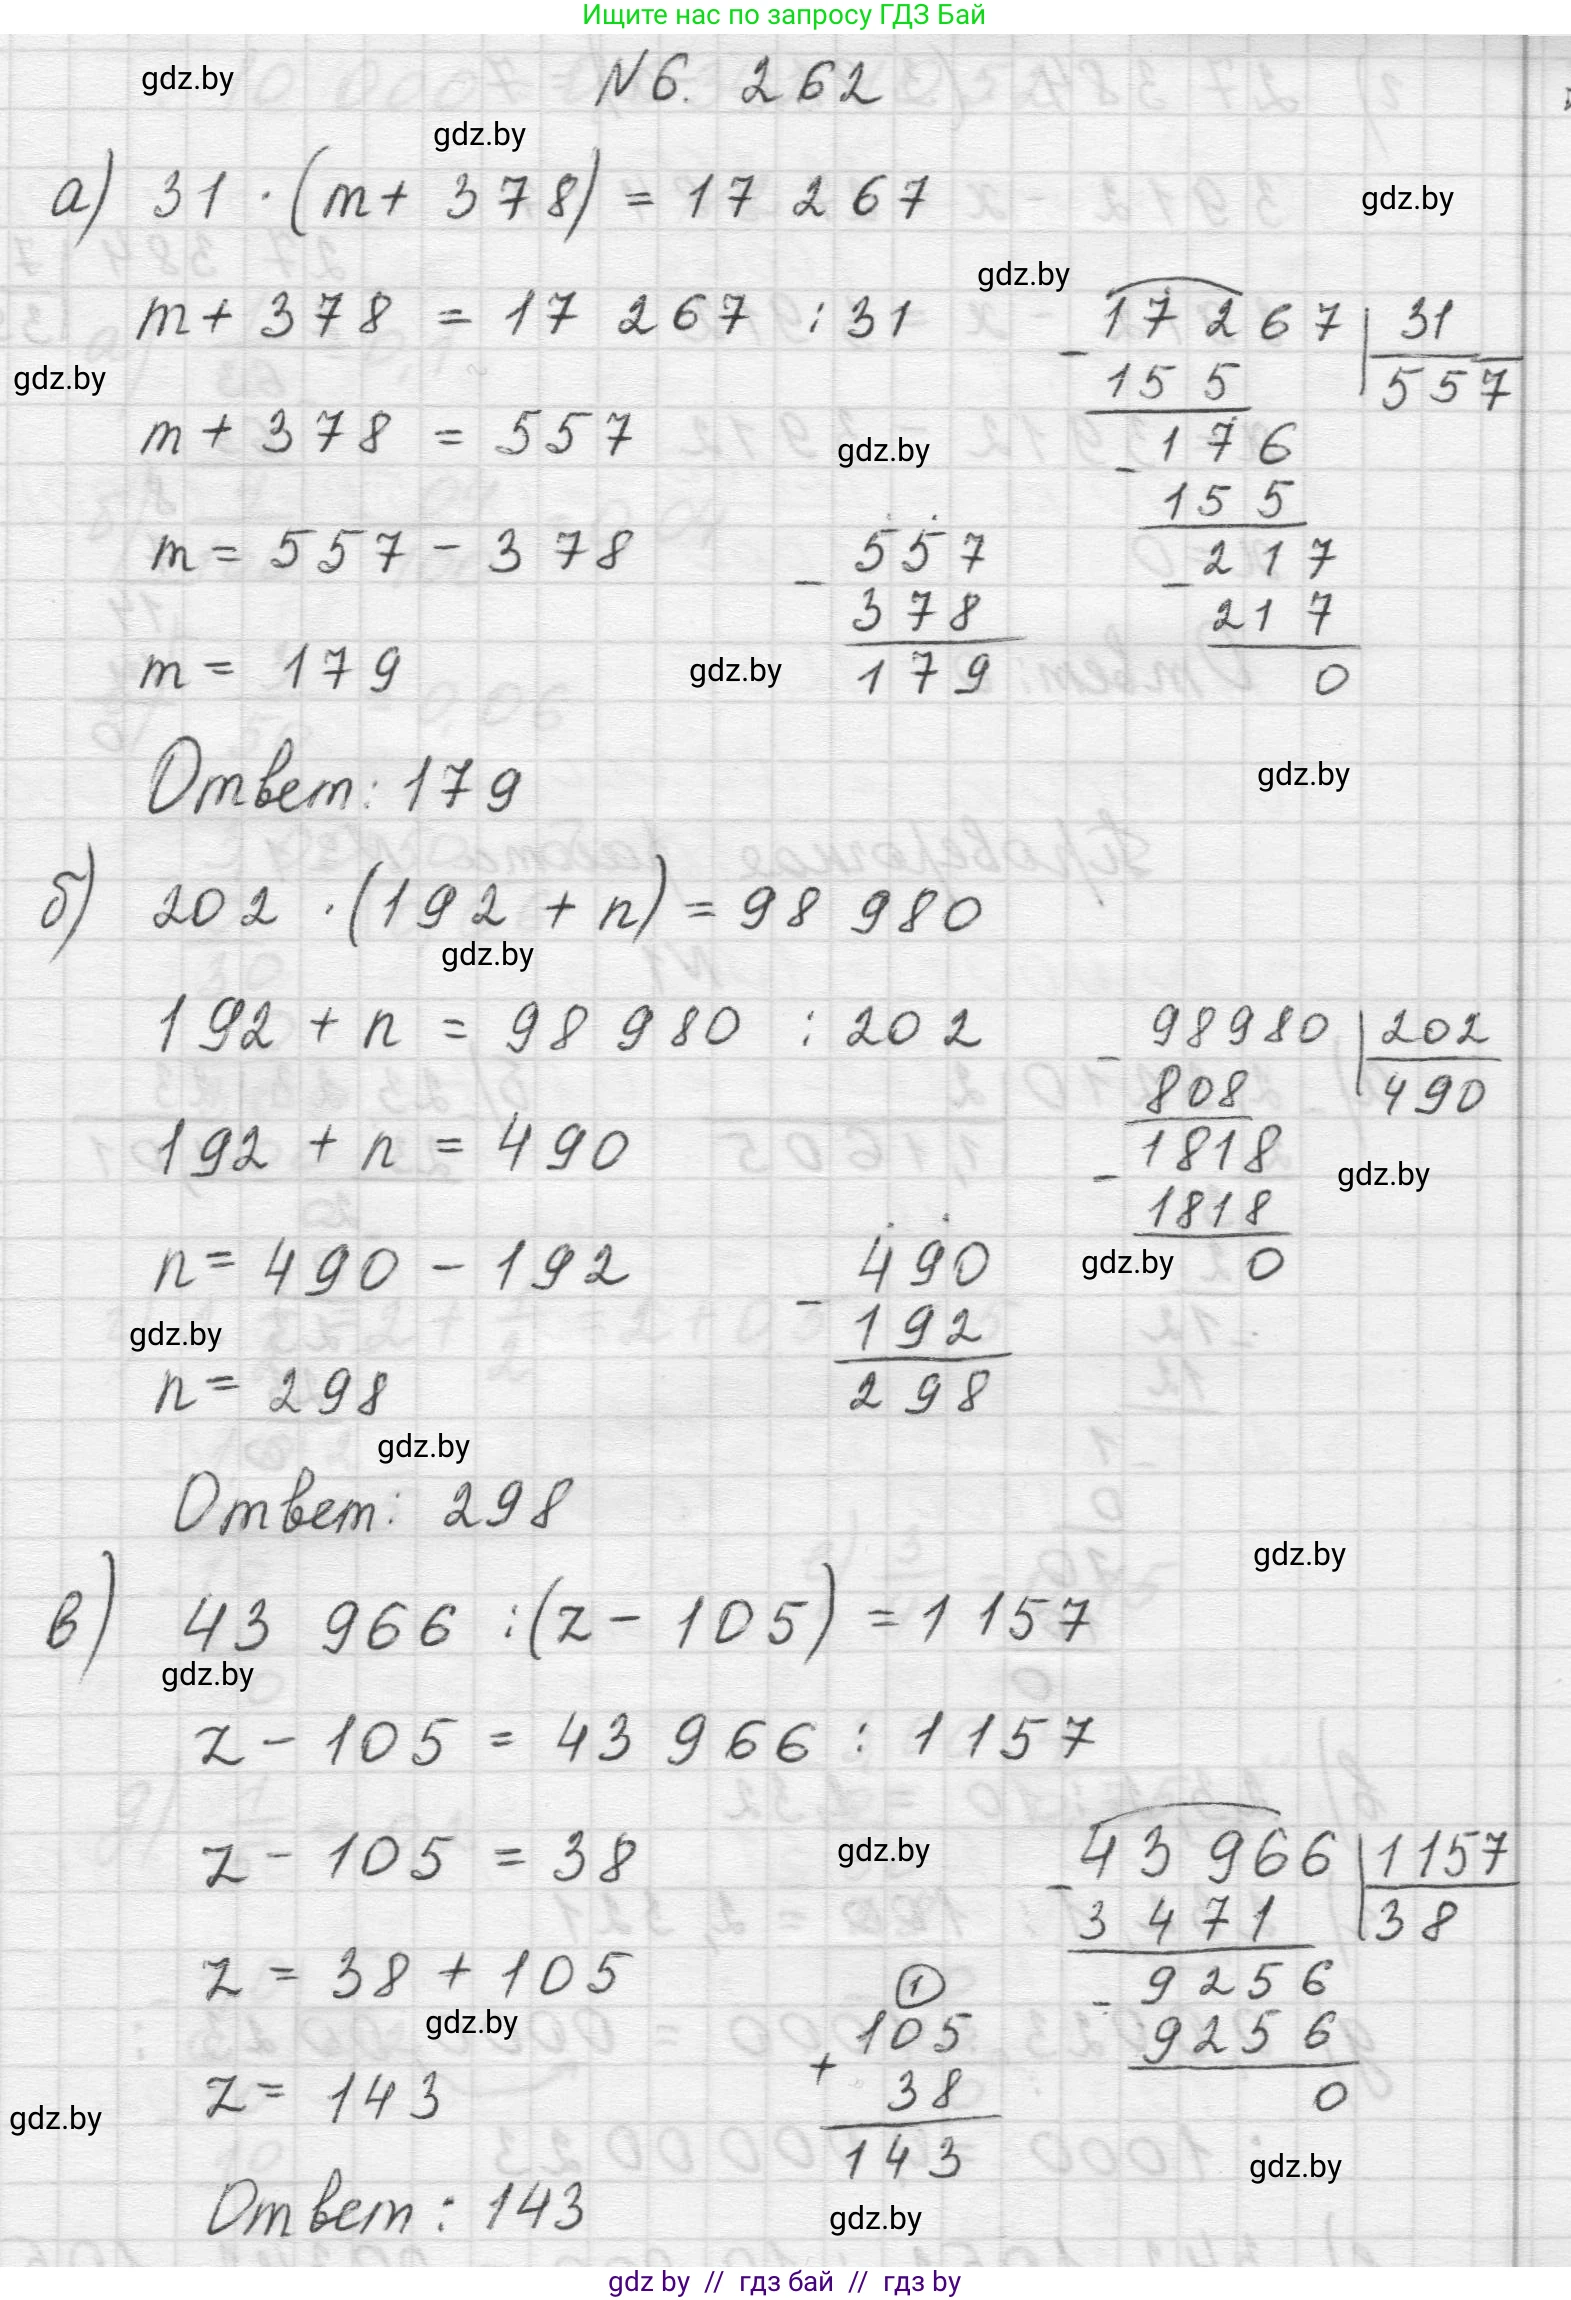 Ищите нас по запросу ГДЗ Бай
gdz.by
N 6. 262
gdz.by
а) 31 · (m + 378) = 17 267
gdz.by
gdz.by
m + 378 = 17 267 : 31
gdz.by
m + 378 = 557
gdz.by
m = 557 - 378
m = 179
gdz.by
17 267 | 31
- 155
557
- 176
155
- 217
217
0
- 557
378
179
gdz.by
Ответ: 179
б) 202 · (192 + n) = 98 980
gdz.by
192 + n = 98 980 : 202
192 + n = 490
n = 490 - 192
gdz.by
n = 298
98980 | 202
- 808
490
- 1818
1818
0
gdz.by
gdz.by
- 490
192
298
gdz.by
Ответ: 298
gdz.by
в) 43 966 : (z - 105) = 1 157
gdz.by
z - 105 = 43 966 : 1157
z - 105 = 38
gdz.by
z = 38 + 105
gdz.by
z = 143
gdz.by
43 966 | 1157
- 3 471
38
- 9256
9256
0
1
105
+ 38
143
gdz.by
Ответ: 143
gdz.by
gdz by // гдз бай // гдз by